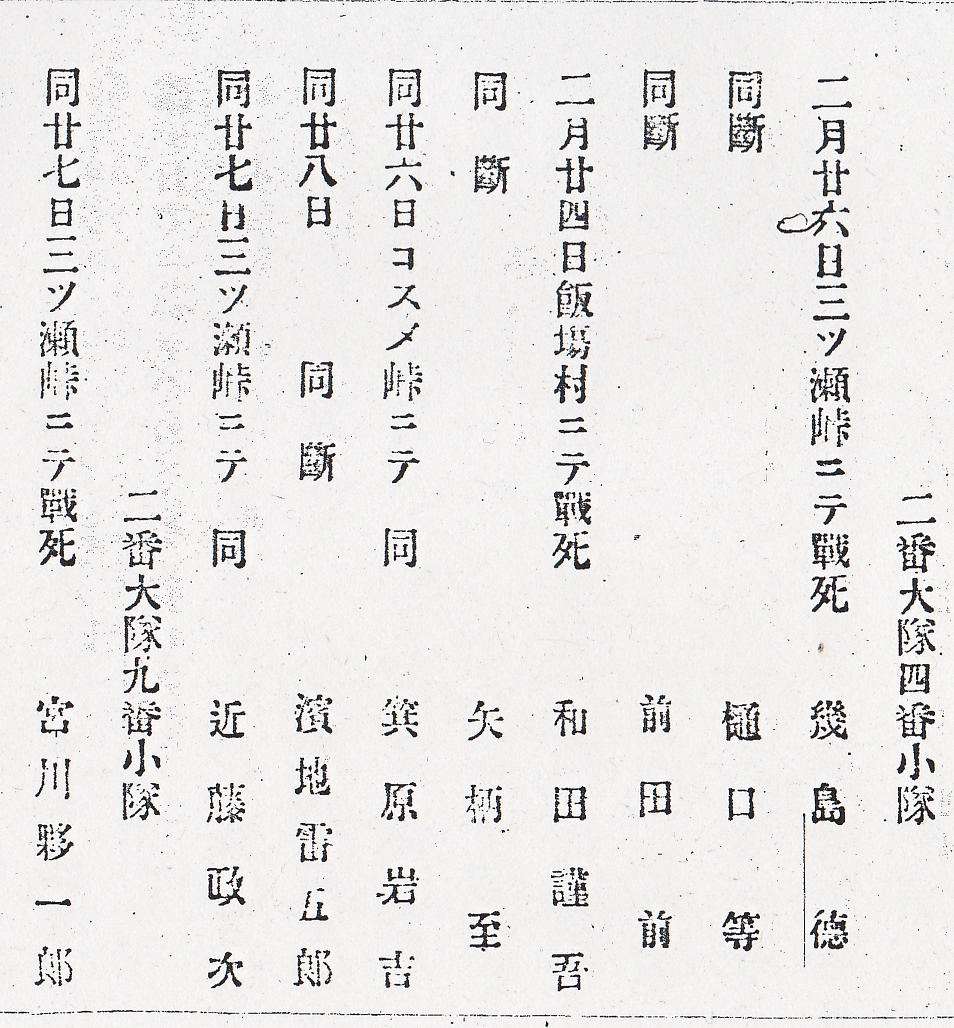 二番大隊四番小隊
二月廿六日三ツ瀬峠ニテ戰死 幾島德
同斷 樋口等
同斷 前田前
二月廿四日飯塲村ニテ戰死 和田謹吾
同斷 矢柄至
同廿六日コスメ峠ニテ同 箕原岩吉
同廿八日 同斷 濱地雷五郎
同廿七日三ツ瀬峠ニテ同 近藤政次
二番大隊九番小隊
同廿七日三ツ瀬峠ニテ戰死 宮川夥一郎